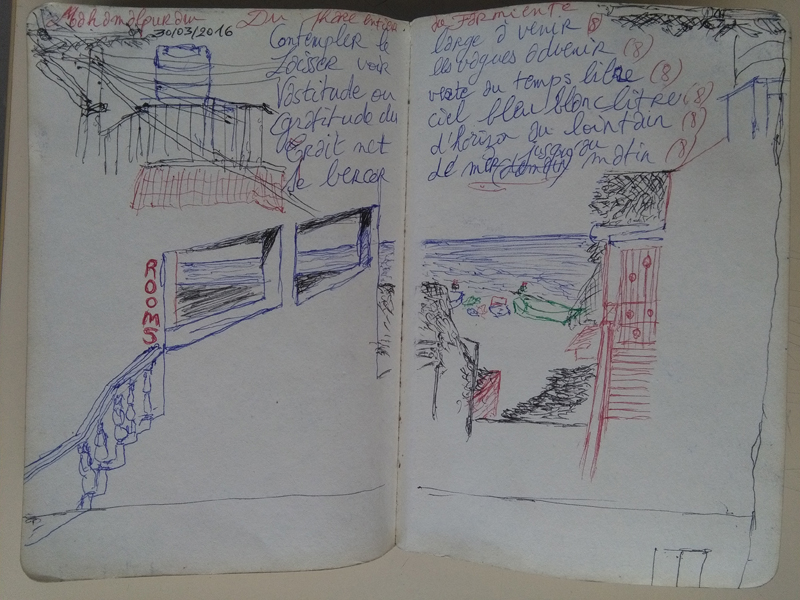 Mahamalpuram Du Phare entier du Farniente
30/03/2016
Contempler le large à venir (8)
Laisser voir les vagues advenir (8)
Vastitude ou verte au temps libre (8)
gratitude du ciel bleu blanc litre (8)
trait net d'horizon au lointain (8)
se bercer de mer jusqu'au matin (8)
ROOMS